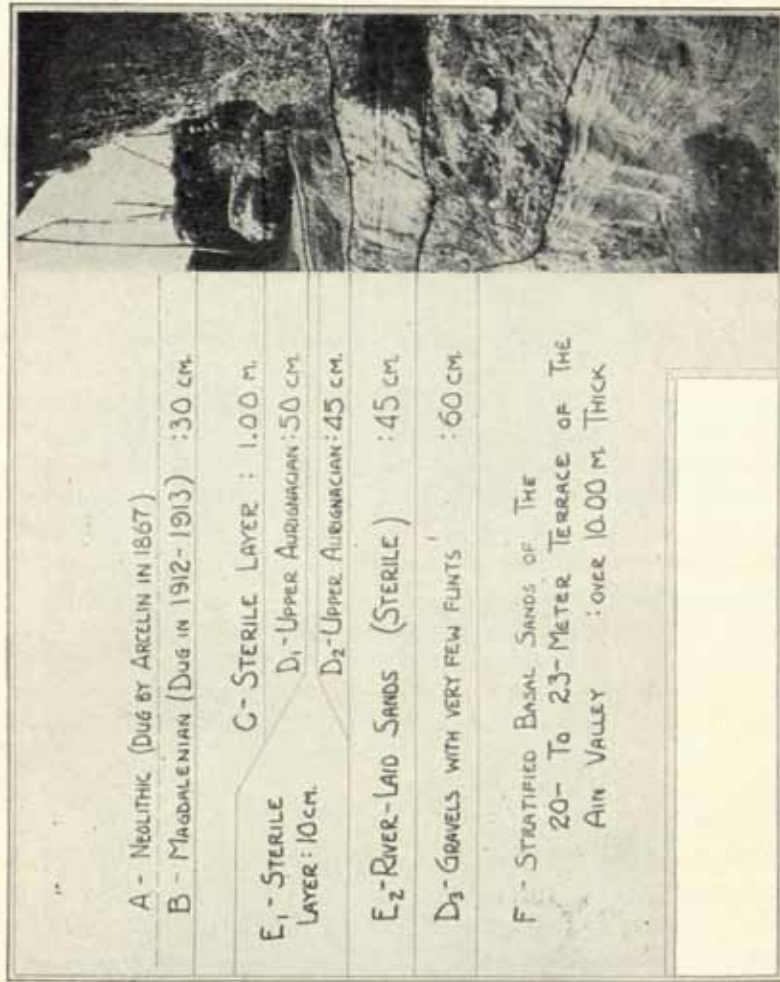 A - NEOLITHIC (DUG BY ARCELIN IN 1867)
B - MAGDALENIAN (DUG IN 1912-1913) : 30 CM.
C - STERILE LAYER : 1.00 M.
D₁ - UPPER AURIGNACIAN : 50 CM.
E₁ - STERILE
LAYER : 10 CM.
D₂ - UPPER AURIGNACIAN : 45 CM.
E₂ - RIVER-LAID SANDS (STERILE) : 45 CM.
D₃ - GRAVELS WITH VERY FEW FLINTS : 60 CM.
F - STRATIFIED BASAL SANDS OF THE
20- TO 23- METER TERRACE OF THE
AIN VALLEY : OVER 10.00 M THICK